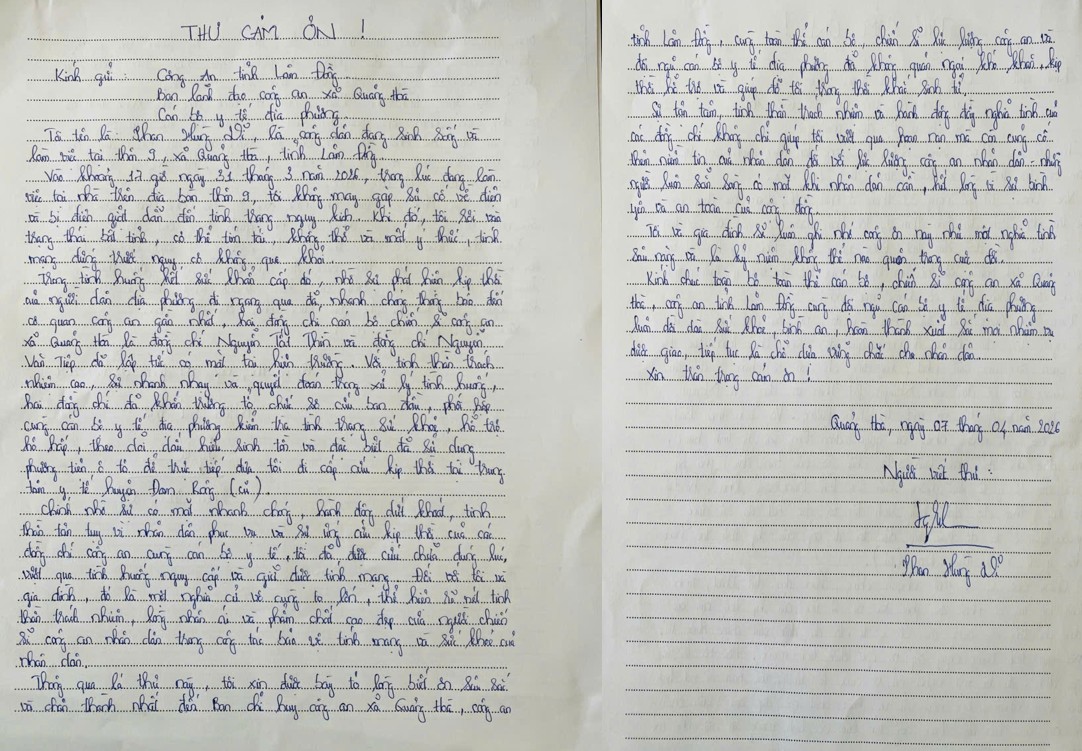 THƯ CẢM ƠN !
Kính gửi : Công An tỉnh Lâm Đồng.
Ban lãnh đạo công an xã Quảng Hoà
Cán bộ y tế địa phương.
Tôi tên là : Phan Hùng Dĩ, là công dân đang sinh sống và
làm việc tại thôn 9, xã Quảng Hoà, tỉnh Lâm Đồng.
Vào khoảng 17 giờ ngày 31 tháng 3 năm 2026, trong lúc đang làm
việc tại nhà trên địa bàn thôn 9, tôi không may gặp sự cố về điện
và bị điện giật dẫn đến tình trạng nguy kịch. Khi đó, tôi rơi vào
trạng thái bất tỉnh, cơ thể tím tái, không thở và mất ý thức, tính
mạng đứng trước nguy cơ không qua khỏi.
Trong tình huống hết sức khẩn cấp đó, nhờ sự phát hiện kịp thời
của người dân địa phương đi ngang qua đã nhanh chóng thông báo đến
cơ quan công an gần nhất, hai đồng chí cán bộ chiến sĩ công an
xã Quảng Hoà là đồng chí Nguyễn Tất Thiên và đồng chí Nguyễn
Văn Tiếp đã lập tức có mặt tại hiện trường. Với tinh thần trách
nhiệm cao, sự nhanh nhạy và quyết đoán trong xử lý tình huống,
hai đồng chí đã khẩn trương tổ chức sơ cứu ban đầu, phối hợp
cùng cán bộ y tế địa phương kiểm tra tình trạng sức khoẻ, hỗ trợ
hô hấp, theo dõi dấu hiệu sinh tồn và đặc biệt đã sử dụng
phương tiện ô tô để trực tiếp đưa tôi đi cấp cứu kịp thời tại trung
tâm y tế huyện Đam Rông (cũ)
Chính nhờ sự có mặt nhanh chóng, hành động dứt khoát, tinh
thần tận tụy vì nhân dân, phục vụ và sự ứng cứu kịp thời của các
đồng chí công an cùng cán bộ y tế, tôi đã được cứu chữa đúng lúc,
vượt qua tình huống nguy cấp và giữ được tính mạng. Đối với tôi và
gia đình, đó là một nghĩa cử vô cùng to lớn, thể hiện rõ nét tinh
thần trách nhiệm, lòng nhân ái và phẩm chất cao đẹp của người chiến
sĩ công an nhân dân trong công tác bảo vệ tính mạng và sức khoẻ của
nhân dân.
Thông qua lá thư này, tôi xin được bày tỏ lòng biết ơn sâu sắc
và chân thành nhất đến Ban chỉ huy công an xã Quảng Hoà, công an
tỉnh Lâm Đồng, cùng toàn thể cán bộ chiến sĩ lực lượng công an và
đội ngũ cán bộ y tế địa phương đã không quản ngại khó khăn, kịp
thời hỗ trợ và giúp đỡ tôi trong thời khắc sinh tử.
Sự tận tâm, tinh thần trách nhiệm và hành động đầy nghĩa tình của
các đồng chí không chỉ giúp tôi vượt qua hoạn nạn mà còn củng cố
thêm niềm tin của nhân dân đối với lực lượng công an nhân dân - những
người luôn sẵn sàng có mặt khi nhân dân cần, hết lòng vì sự bình
yên và an toàn của cộng đồng.
Tôi và gia đình sẽ luôn ghi nhớ công ơn này như một nghĩa tình
sâu nặng và là kỷ niệm không thể nào quên trong cuộc đời.
Kính chúc toàn bộ toàn thể cán bộ, chiến sĩ công an xã Quảng
Hoà, công an tỉnh Lâm Đồng cùng đội ngũ cán bộ y tế địa phương
luôn dồi dào sức khoẻ, bình an, hoàn thành xuất sắc mọi nhiệm vụ
được giao, tiếp tục là chỗ dựa vững chắc cho nhân dân.
Xin trân trọng cảm ơn !
Quảng Hoà, ngày 07 tháng 04 năm 2026
Người viết thư :
Phan Hùng Dĩ